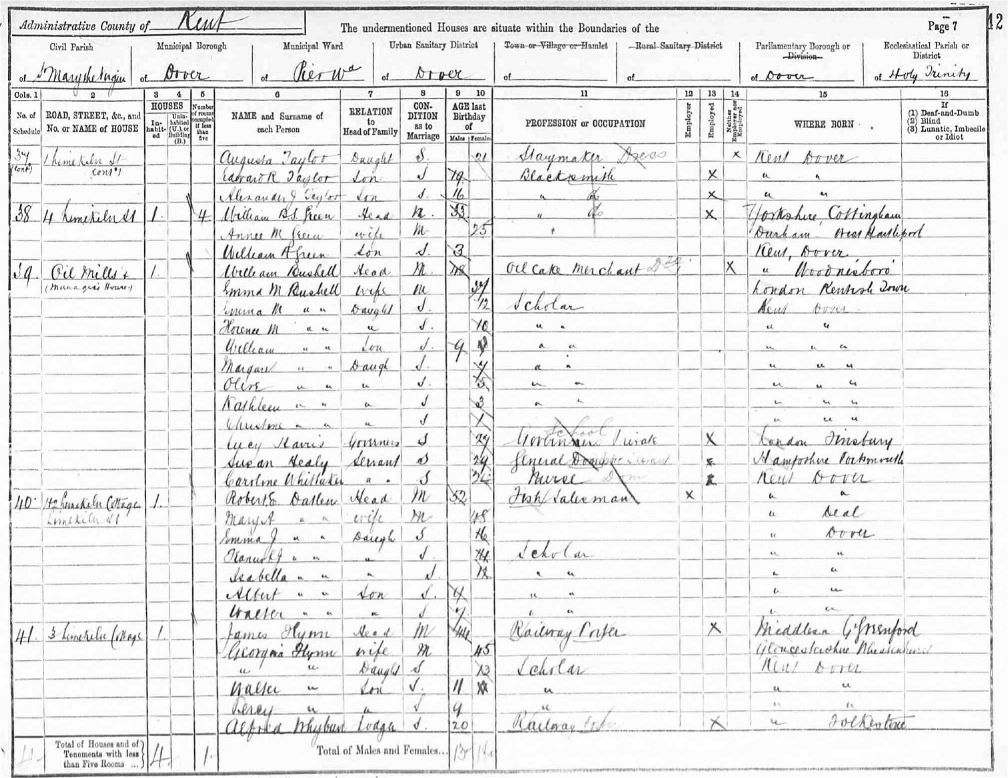 Administrative County of Kent The undermentioned Houses are situate within the Boundaries of the Page 7 12
Civil Parish Municipal Borough Municipal Ward Urban Sanitary District Town or Village or Hamlet Rural Sanitary District Parliamentary Borough or Division Ecclesiastical Parish or District
of St Mary the Virgin of Dover of Pier Wd of Dover of of of Dover of Holy Trinity
Cols. 1 2 3 4 5 6 7 8 9 10 11 12 13 14 15 16
No. of Schedule ROAD, STREET, &c., and No. or NAME of HOUSE HOUSES Inhabited Uninhabited (U.) or Building (B.) Number of rooms occupied if less than five NAME and Surname of each Person RELATION to Head of Family CONDITION as to Marriage AGE last Birthday of Males Females PROFESSION or OCCUPATION Employer Employed Neither Employer nor Employed WHERE BORN If (1) Deaf-and-Dumb (2) Blind (3) Lunatic, Imbecile or Idiot
37 (cont) 1 Limekiln St (contd) Augusta Taylor Daught S. 21 Staymaker Dress X Kent Dover
Edward R Taylor Son S. 19 Blacksmith X " "
Alexander J Taylor Son S. 16 " do X " "
38 4 Limekiln St 1. 4 William B S Green Head M. 33 " do X Yorkshire, Cottingham
Annie M Green wife M 25 " Durham West Hartlepool
William A Green Son S 3 Kent, Dover
39. Oil Mills + 1. William Bushell Head M 48 Oil Cake Merchant X " Woodnesboro'
(Managers House) Emma M Bushell wife M 37 London Kentish Town
Emma M " " Daught S. 12 Scholar Kent Dover
Florence M " " " S. 10 " " " "
William " " Son S. 9 " " " " "
Margaret " " Daugh S. 7 " " " " "
Olive " " " S. 5 " " " " "
Kathleen " " " S 3 " " " " "
Christine " " " S 1 " " "
Lucy Harris Governess S 29 Governess School Private X London Finsbury
Susan Healy Servant S 24 General Domestic Servant X Hampshire Portsmouth
Caroline Whittaker " " S Nurse Dom X Kent Dover
40 1+2 Limekiln Cottages 1. Robert E Head M 52 Fish Salesman X " "
Limekiln St Mary A " " wife M 48 " Deal
Emma J " " Daugh S 16 " Dover
" " " S. 14 Scholar " "
Isabella " " " S. 12 " " " "
Albert " " Son S. 9 " " " "
Walter " " " S 7 " " " "
41. 3 Limekiln Cottage 1. James Flynn Head M 44 Railway Porter X Middlesex Greenford
Georgina Flynn wife M 45 Gloucestershire
" " Daught S 13 Scholar Kent Dover
Walter " Son S. 11 " " "
Percy " " S 9 " " "
Alfred Whyburn Lodger S. 20 Railway X " Folkestone
4 Total of Houses and of Tenements with less than Five Rooms ... 4 1. Total of Males and Females...